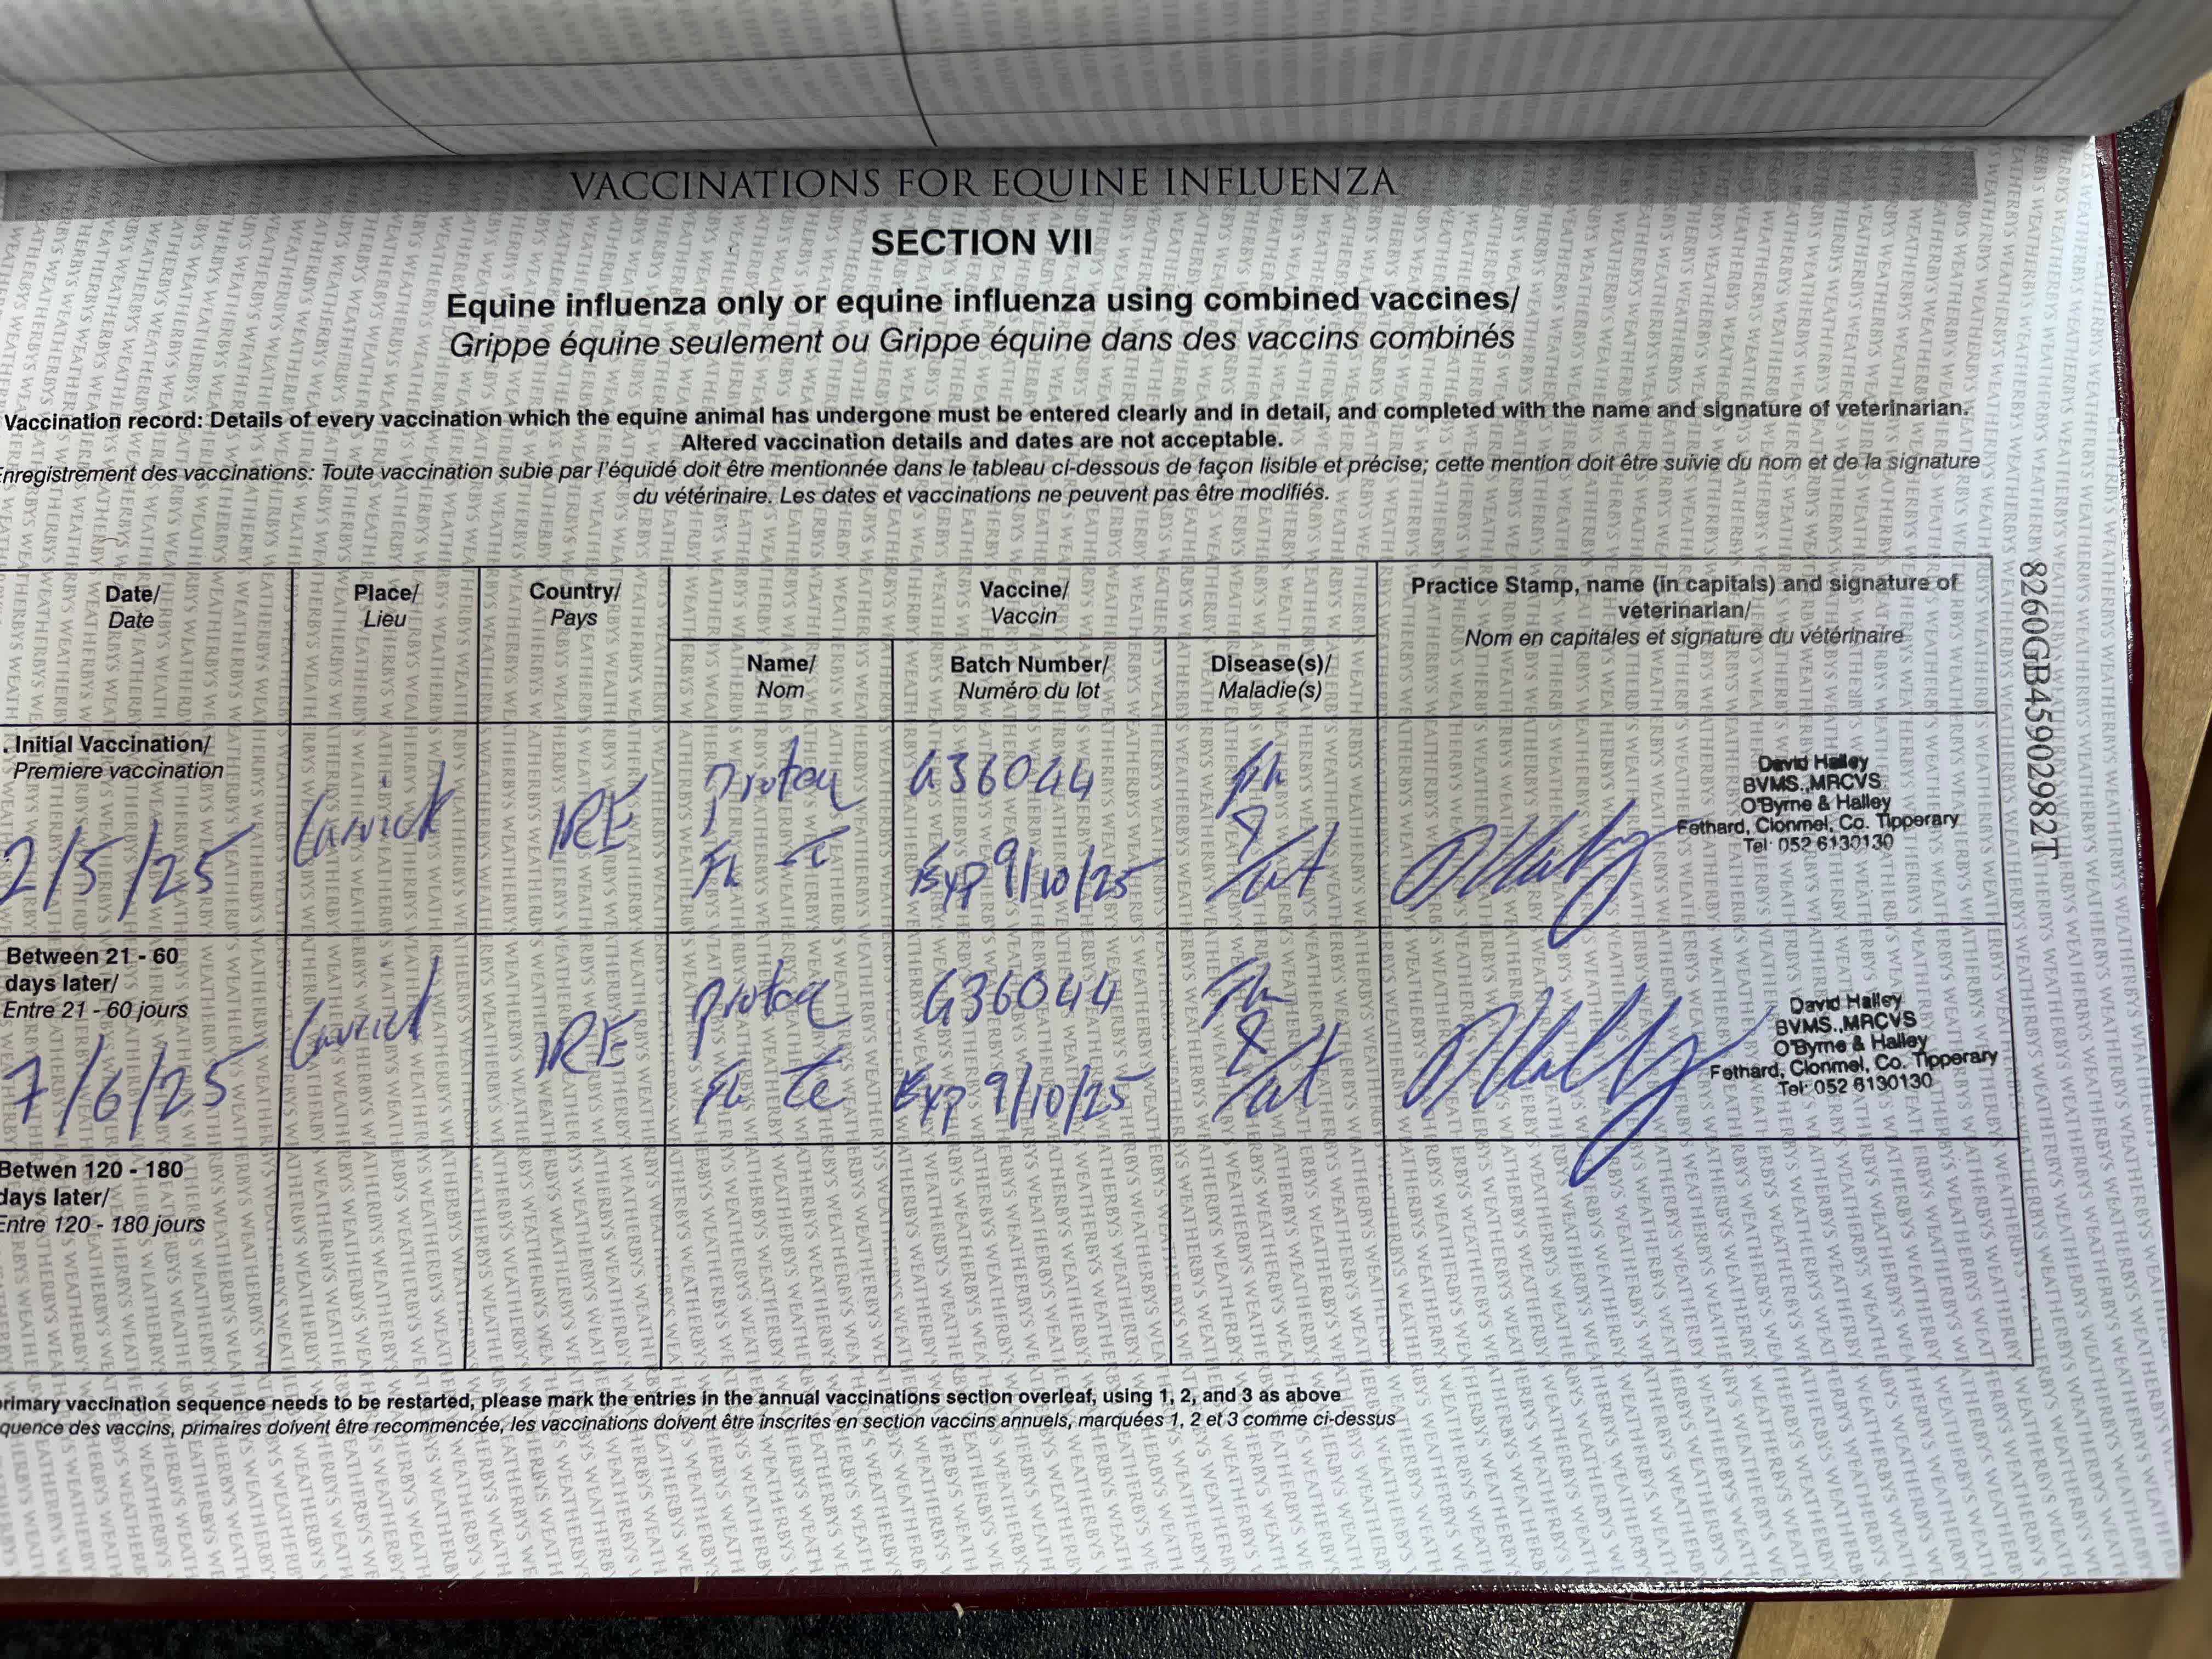 VACCINATIONS FOR EQUINE INFLUENZA
SECTION VII
Equine influenza only or equine influenza using combined vaccines/
Grippe équine seulement ou Grippe équine dans des vaccins combinés
Vaccination record: Details of every vaccination which the equine animal has undergone must be entered clearly and in detail, and completed with the name and signature of veterinarian.
Altered vaccination details and dates are not acceptable.
Enregistrement des vaccinations: Toute vaccination subie par l'équidé doit être mentionnée dans le tableau ci-dessous de façon lisible et précise; cette mention doit être suivie du nom et de la signature
du vétérinaire. Les dates et vaccinations ne peuvent pas être modifiés.
Date/
Date
Place/
Lieu
Country/
Pays
Vaccine/
Vaccin
Practice Stamp, name (in capitals) and signature of
veterinarian/
Nom en capitales et signature du vétérinaire
Name/
Nom
Batch Number/
Numéro du lot
Disease(s)/
Maladie(s)
. Initial Vaccination/
Premiere vaccination
2/5/25
Carrick
IRE
Proteq
Flu Te
G36044
Exp 9/10/25
Flu
&
Tet
David Halley
BVMS.,MRCVS
O'Byrne & Halley
Fethard, Clonmel, Co. Tipperary
Tel: 052 6130130
Between 21 - 60
days later/
Entre 21 - 60 jours
7/6/25
Carrick
IRE
Proteq
Flu Te
G36044
Exp 9/10/25
Flu
&
Tet
David Halley
BVMS.,MRCVS
O'Byrne & Halley
Fethard, Clonmel, Co. Tipperary
Tel: 052 6130130
Betwen 120 - 180
days later/
Entre 120 - 180 jours
primary vaccination sequence needs to be restarted, please mark the entries in the annual vaccinations section overleaf, using 1, 2, and 3 as above
quence des vaccins, primaires doivent être recommencée, les vaccinations doivent être inscrites en section vaccins annuels, marquées 1, 2 et 3 comme ci-dessus
8260GB45902982T
WEATHERBYS